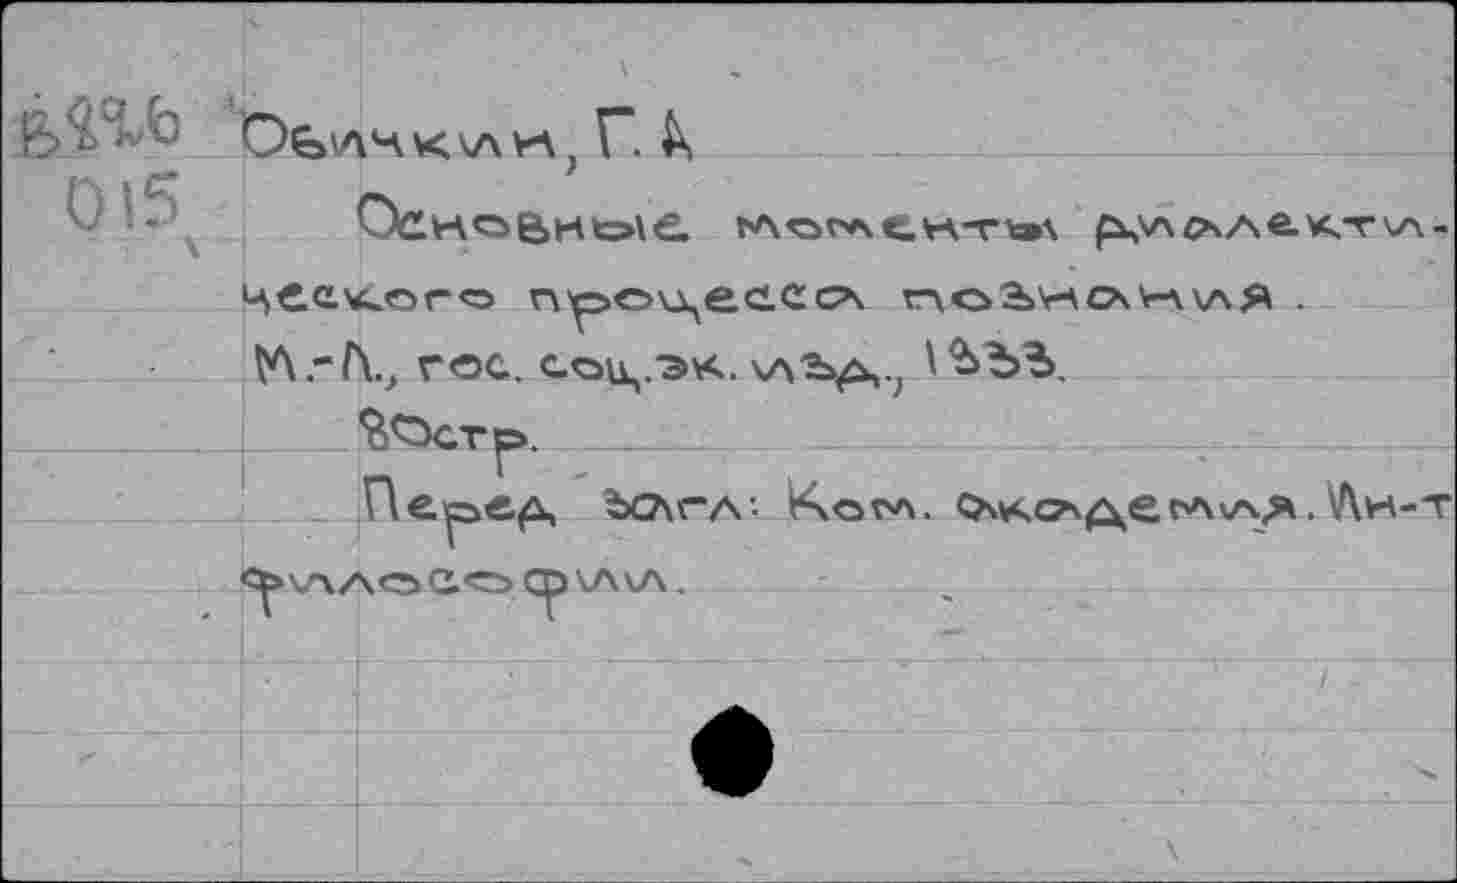 015
Обичкин, Г. Д
Основные моменты диалекти-
ческого процесса познания.
М.-Л., гос. соц.эк. изд., 1933.
80стр.
Перед загл: Ком. академия. Ин-т
философии.